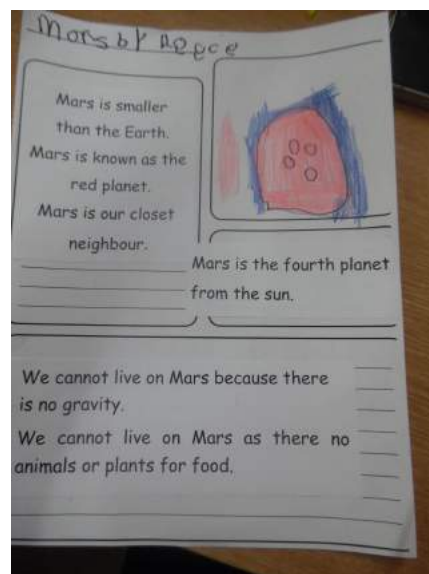 Mars by Reece
Mars is smaller
than the Earth.
Mars is known as the
red planet.
Mars is our closet
neighbour.
Mars is the fourth planet
from the sun.
We cannot live on Mars because there
is no gravity.
We cannot live on Mars as there no
animals or plants for food.